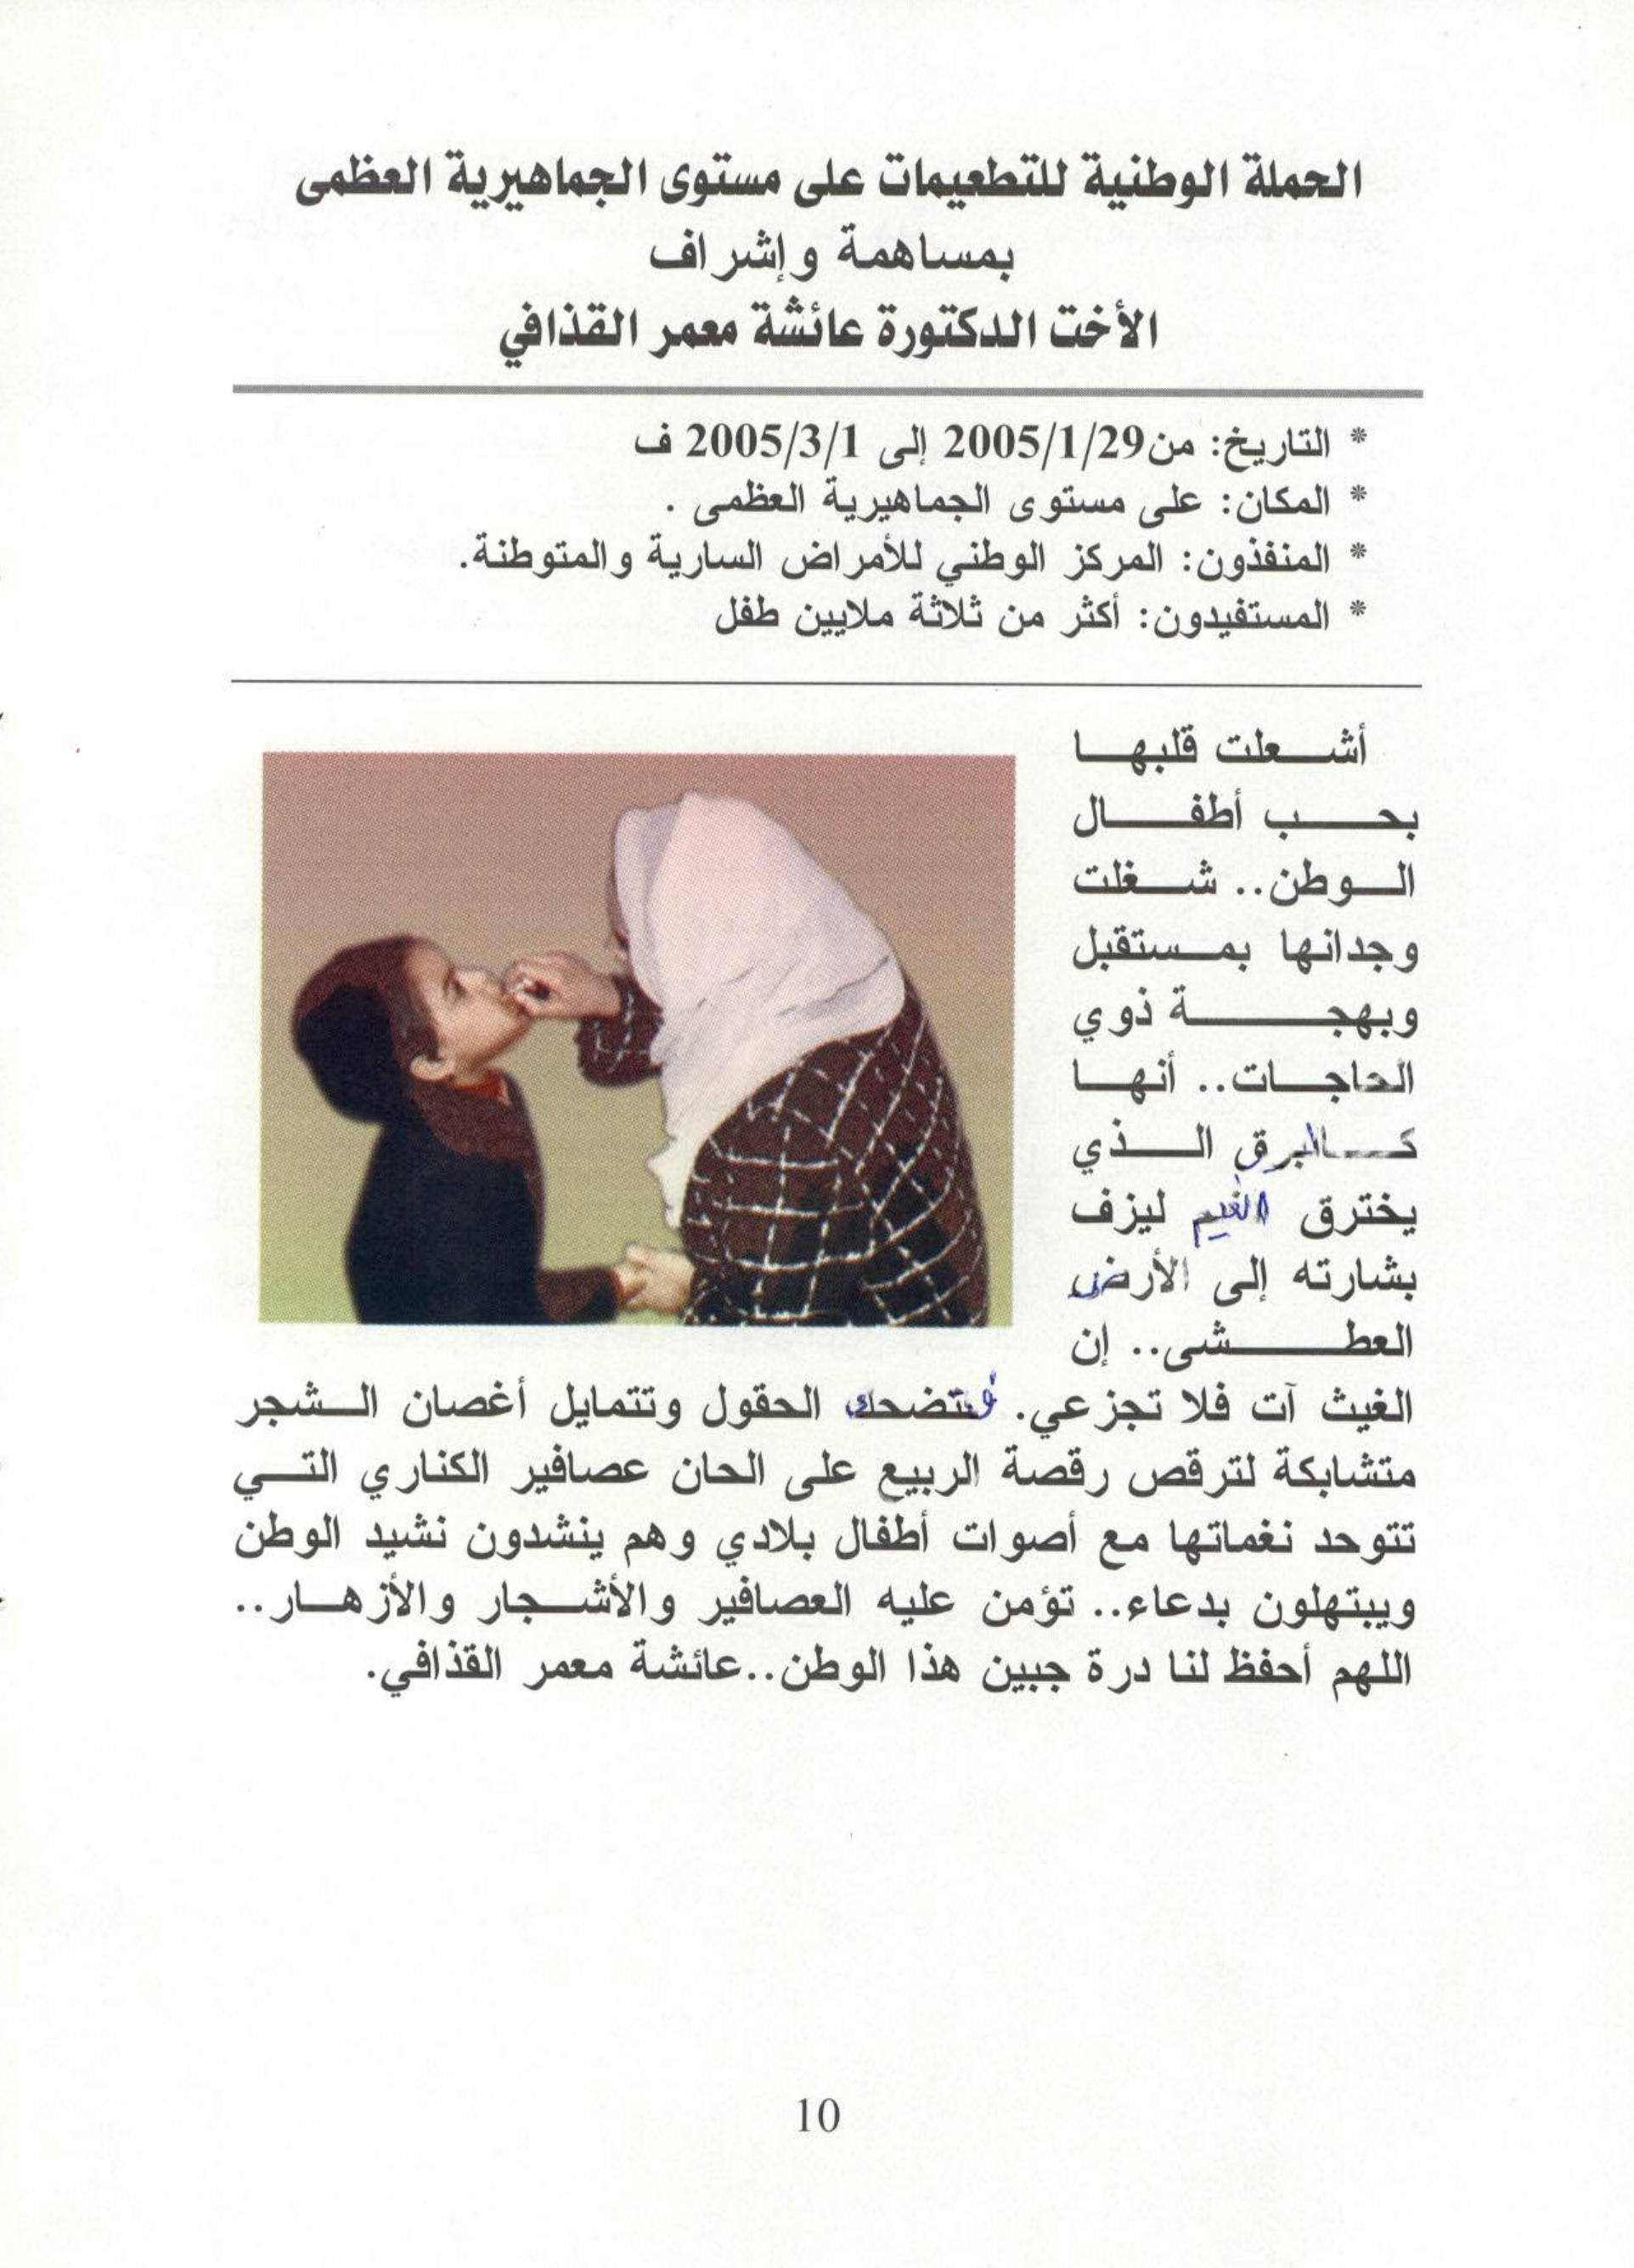 الحملة الوطنية للتطعيمات على مستوى الجماهيرية العظمى
بمساهمة وإشراف
الأخت الدكتورة عائشة معمر القذافي
* التاريخ: من2005/1/29 إلى 2005/3/1 ف
* المكان: على مستوى الجماهيرية العظمى .
* المنفذون: المركز الوطني للأمراض السارية والمتوطنة.
* المستفيدون: أكثر من ثلاثة ملايين طفل
أشعلت قلبها
بحب أطفال
الوطن.. شغلت
وجدانها بمستقبل
وبهجة ذوي
الحاجات.. أنها
كالبرق الذي
يخترق الغيم ليزف
بشارته إلى الأرض
العطشى.. إن
الغيث آت فلا تجزعي. فتضحك الحقول وتتمايل أغصان الشجر
متشابكة لترقص رقصة الربيع على الحان عصافير الكناري التي
تتوحد نغماتها مع أصوات أطفال بلادي وهم ينشدون نشيد الوطن
ويبتهلون بدعاء.. تؤمن عليه العصافير والأشجار والأزهار..
اللهم أحفظ لنا درة جبين هذا الوطن..عائشة معمر القذافي.
10